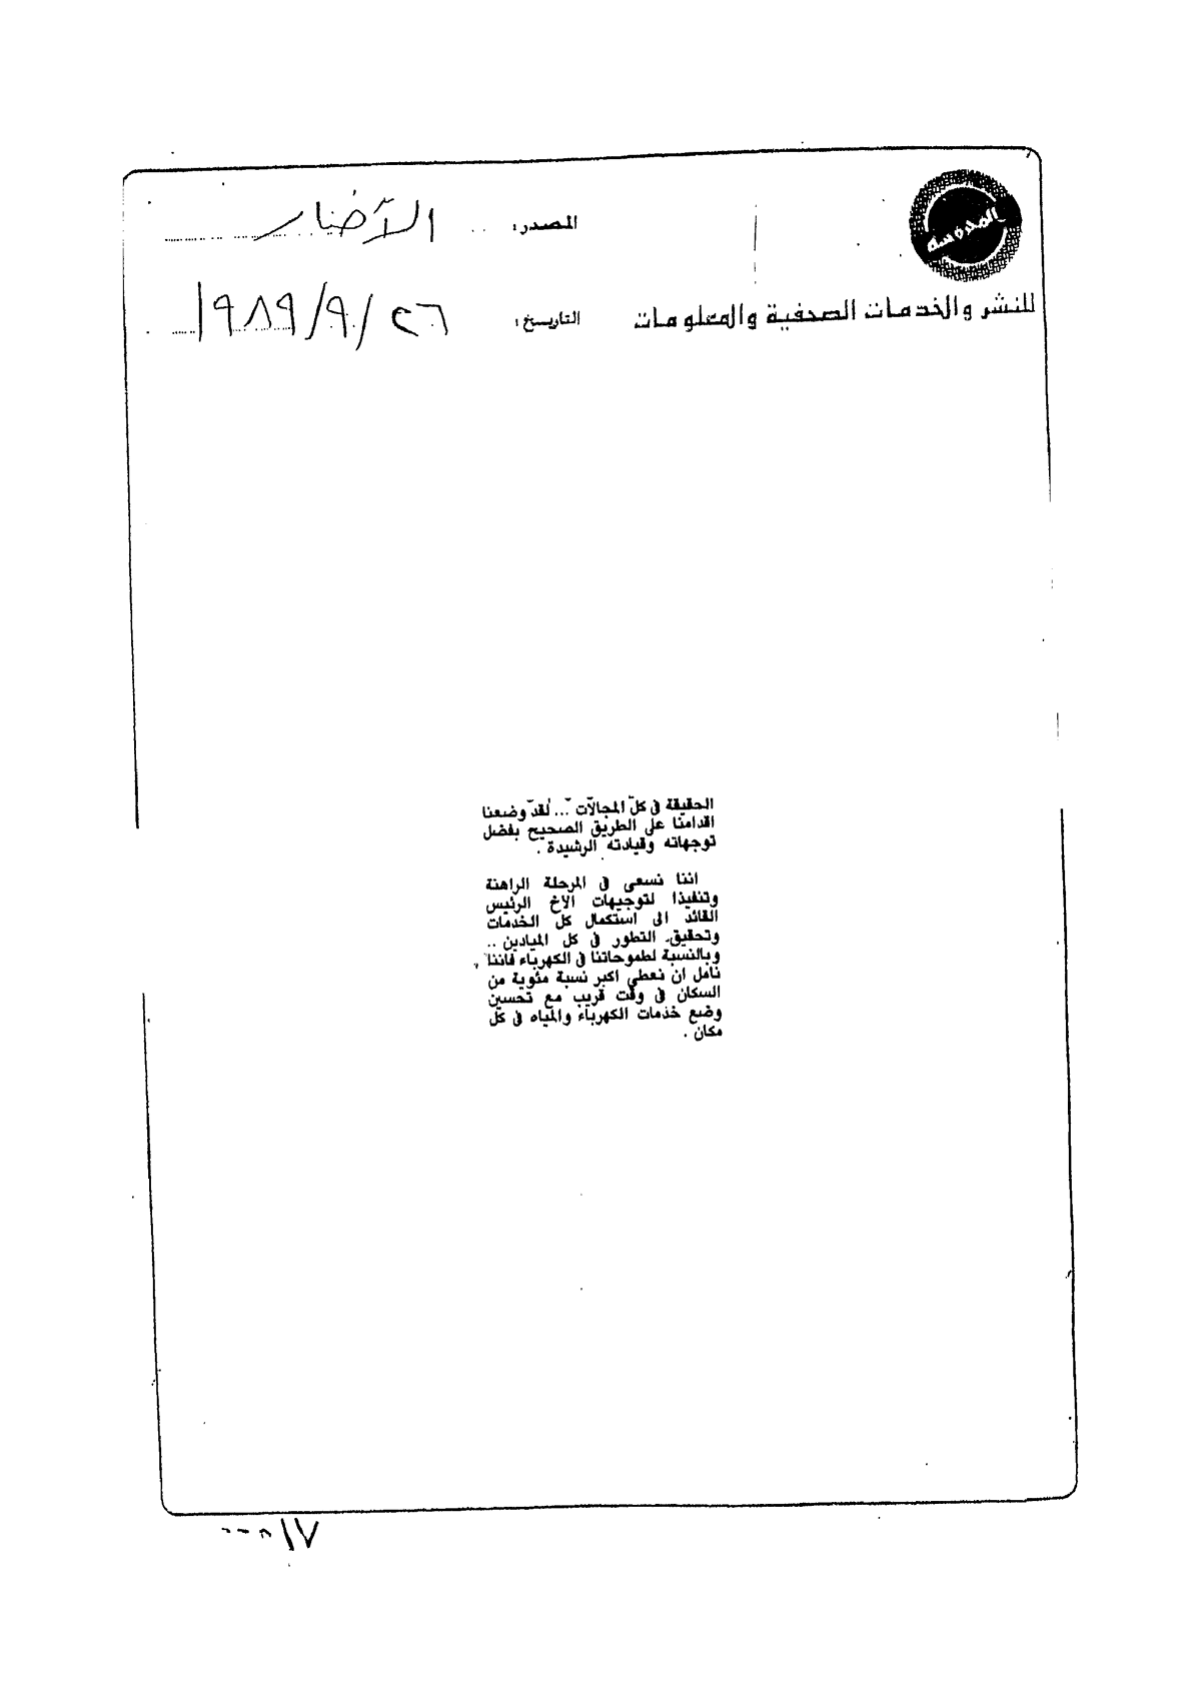 المحروسة
للنشر والخدمات الصحفية والمعلومات
المصدر: الأخبار
التاريخ: ٢٦/٩/١٩٨٩
الحقيقة فى كل المجالات ... لقد وضعنا
اقدامنا على الطريق الصحيح بفضل
توجهاته وقيادته الرشيدة .
اننا نسعى فى المرحلة الراهنة
وتنفيذا لتوجيهات الأخ الرئيس
القائد الى استكمال كل الخدمات
وتحقيق التطور فى كل الميادين ..
وبالنسبة لطموحاتنا فى الكهرباء فاننا
نامل ان نعطى اكبر نسبة مئوية من
السكان فى وقت قريب مع تحسين
وضع خدمات الكهرباء والمياه فى كل
مكان .